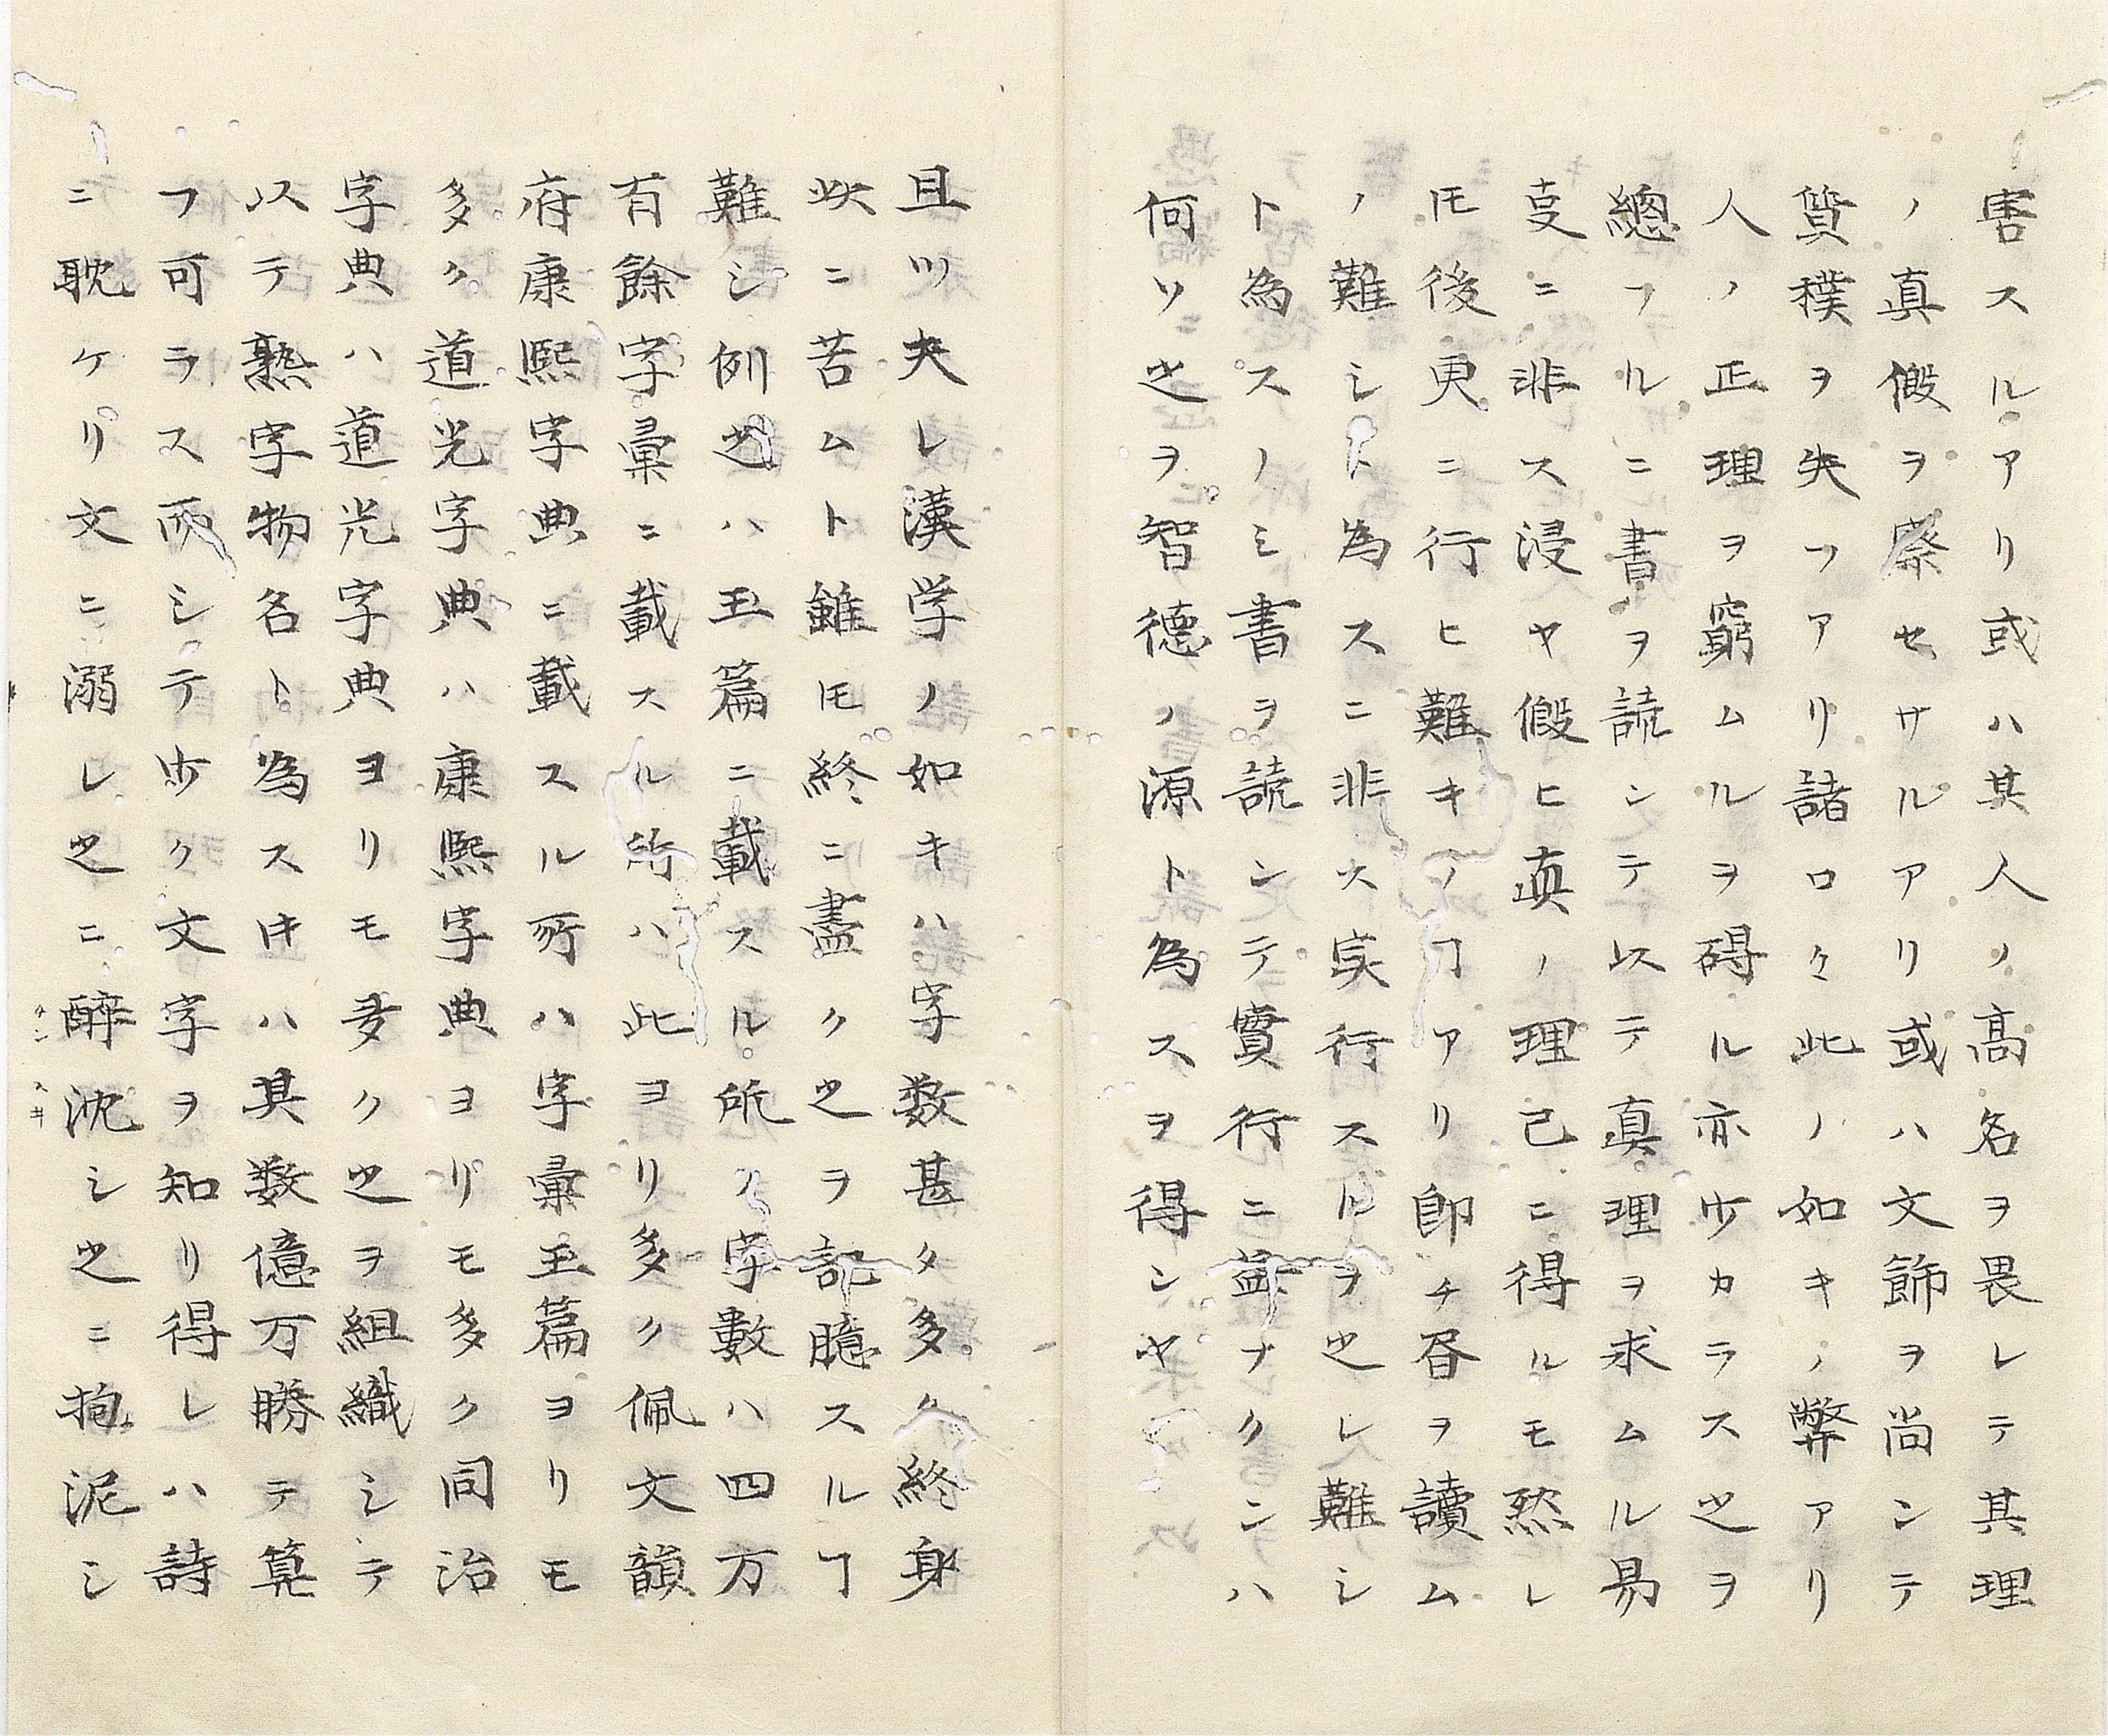 害スルアリ或ハ其人ノ高名ヲ畏レテ其理
ノ真假ヲ察セサルアリ或ハ文飾ヲ尚ンテ
質樸ヲ失フアリ諸ロ々此ノ如キノ弊アリ
人ノ正理ヲ窮ムルヲ碍ル亦少カラス之ヲ
總フルニ書ヲ読ンテ以テ真理ヲ求ムル易
叓ニ非ス浸ヤ假ヒ真ノ理己ニ得ルモ然レ
𪜈後更ニ行ヒ難キノヿアリ即チ昏ヲ讀ム
ノ難シト為スニ非ス実行スルヲ之レ難シ
ト為スノミ書ヲ読ンテ實行ニ益ナクンハ
何ソ之ヲ智德ノ源ト為スヲ得ンヤ
且ツ夫レ漢学ノ如キハ字数甚タ多ク終身
此ニ苦ムト雖𪜈終ニ盡ク之ヲ記臆スルヿ
難シ例之ハ玉篇ニ載スル所ノ字數ハ四万
有餘字彙ニ載スル所ハ此ヨリ多ク佩文韻
府康熙字典ニ載スル所ハ字彙玉篇ヨリモ
多ク道光字典ハ康熙字典ヨリモ多ク同治
字典ハ道光字典ヨリモ多ク之ヲ組織シテ
以テ熟字物名ト為ス𪜈ハ其数億万勝テ算
フ可ラス而シテ少ク文字ヲ知リ得レハ詩
ニ耽ケリ文ニ溺レ之ニ醉沈シ之ニ拘泥シ